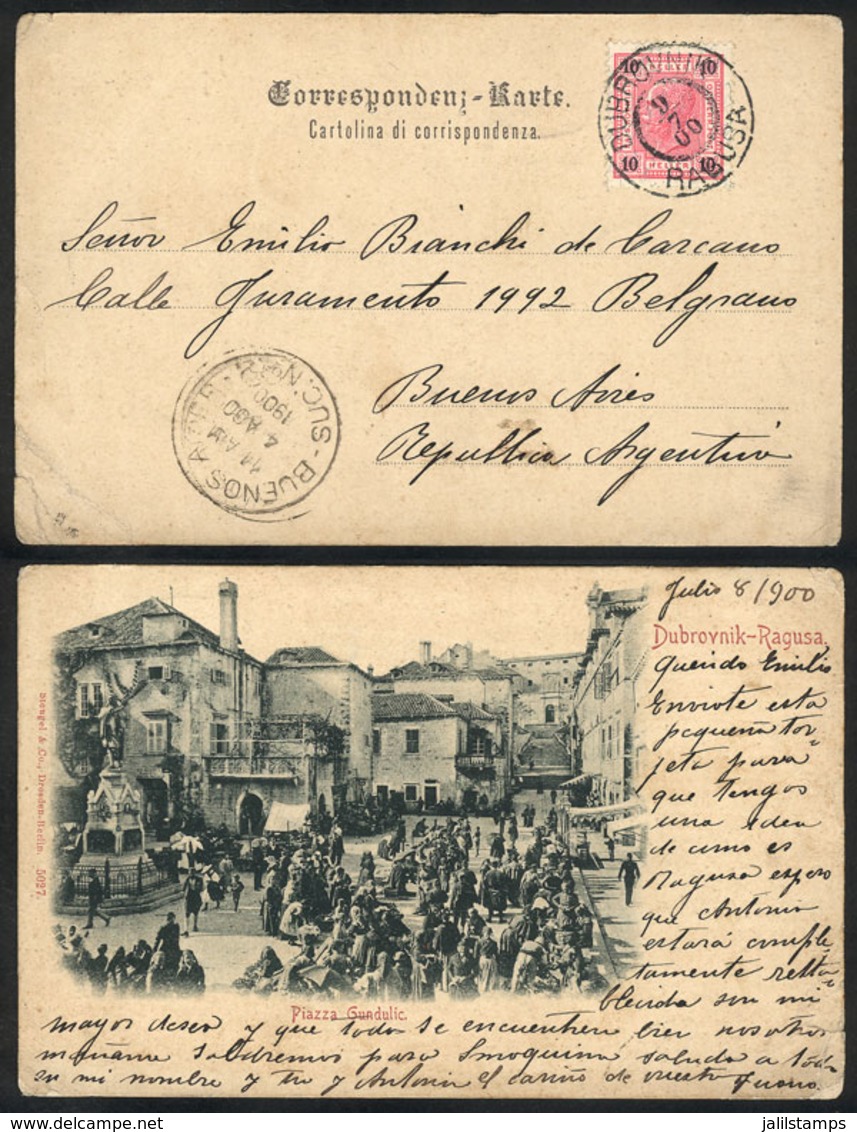 Correspondenz-Karte.
Cartolina di corrispondenza.
10 10
10 HELLER 10
DUBROVNIK
9/7 00
RAGUSA
Señor Emilio Bianchi de Carcano
Calle Juramento 1992 Belgrano
Buenos Aires
Republica Argentina
BUENOS AIRES - SUC. N.
11 AM
4 AGO
1900
Julio 8/900
Dubrovnik-Ragusa.
Querido Emilio
Enviote esta
pequeña tar-
jeta para
que tengas
una idea
de como es
Ragusa espero
que Antonia
estará comple
tamente resta-
blecida son mi
mayor deseo y que todo se encuentren bien nosotros
mañana saldremos para
saluda a todos
en mi nombre y tu y Antonia el cariño de vuestro
Stengel & Co., Dresden-Berlin. 5027.
Piazza Gundulic.
jalilstamps